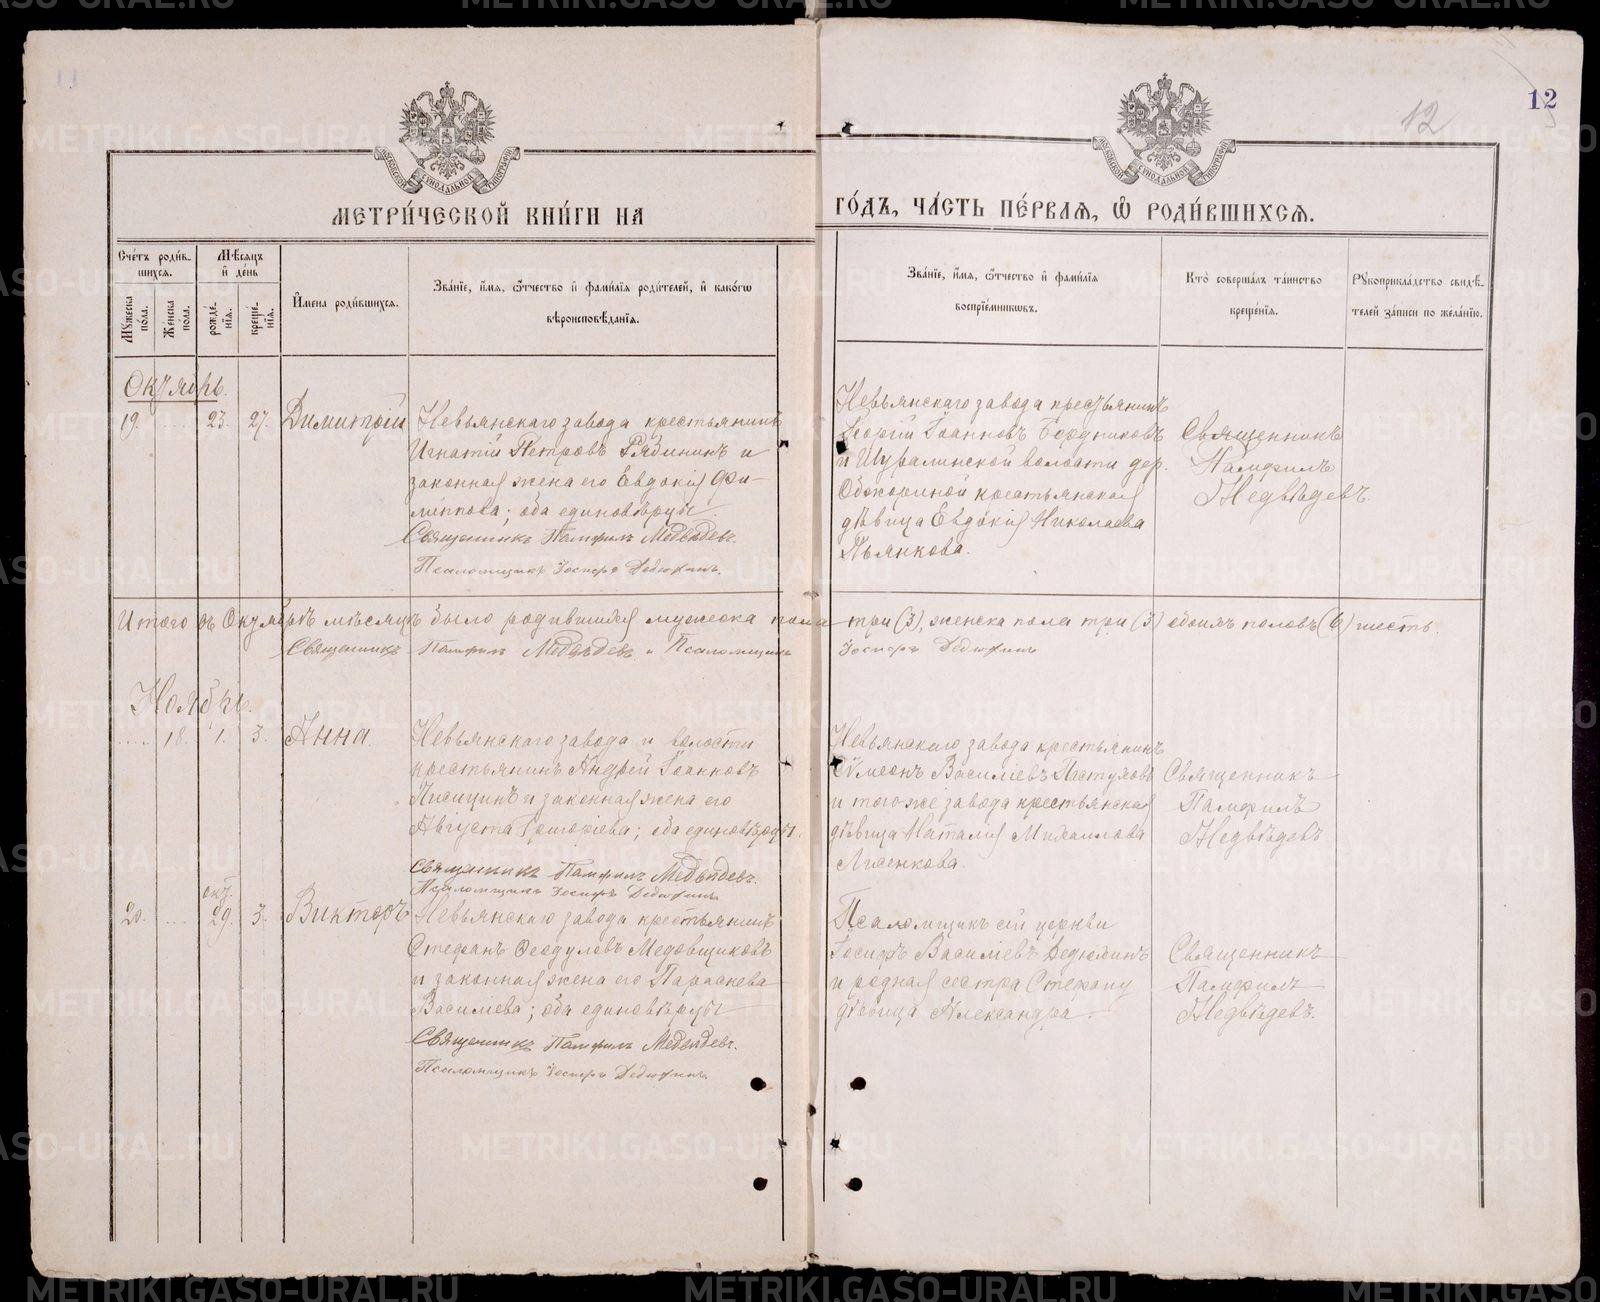 12
12
МЕТРИ́ЧЕСКОЙ КНИ́ГИ НА
ГО́ДЪ, ЧА́СТЬ ПЕ́РВАЯ, Ѡ҆ РОДИ́ВШИХСЯ.
Сче́тъ роди́в-
шихся.
Мѣ́сяцъ
и҆ де́нь
Мꙋ́жеска по́ла.
Же́нска по́ла.
рожде́-
нїя.
креще́-
нїя.
И҆мена роди́вшихся.
Зва́нїе, и҆́мя, ѻ҆́тчество и҆ фами́лїя роди́телей, и҆ како́гѡ
вѣроисповѣ́данїя.
Зва́нїе, и҆́мя, ѻ҆́тчество и҆ фами́лїя
воспрїе́мниковъ.
Кто̀ соверша́лъ та́инство
креще́нїя.
Рꙋкоприкла́дство свидѣ́-
телей за́писи по жела́нїю.
Октябрь.
19. 23. 27. Димитрій
Невьянскаго завода крестьянинъ
Игнатій Петровъ Рябининъ и
законная жена его Евдокія Фи-
липпова; оба единовѣрцы.
Священникъ Памфилъ Медвѣдевъ.
Псаломщикъ Іосифъ Дедюхинъ.
Невьянскаго завода крестьянинъ
Георгій Іоанновъ Бордниковъ
и Шуралинской волости дер.
Обжориной крестьянская
дѣвица Евдокія Николаева
Пьянкова.
Священникъ
Памфилъ
Медвѣдевъ.
Итого въ Октябрѣ мѣсяцѣ было родившихся мужеска пола три (3), женска пола три (3) обоихъ половъ (6) шесть.
Священникъ Памфилъ Медвѣдевъ и Псаломщикъ Іосифъ Дедюхинъ
Ноябрь.
18. 1. 3. Анна.
Невьянскаго завода и волости
крестьянинъ Андрей Іоанновъ
Лисицинъ и законная жена его
Августа Григоріева; оба единовѣрцы.
Священникъ Памфилъ Медвѣдевъ.
Псаломщикъ Іосифъ Дедюхинъ
Невьянскаго завода крестьянинъ
Сѵмеонъ Василіевъ Пастуховъ
и того же завода крестьянская
дѣвица Наталія Михаилова
Лисенкова.
Священникъ
Памфилъ
Медвѣдевъ
окт.
20. 29. 3. Викторъ
Невьянскаго завода крестьянинъ
Стефанъ Ѳеодуловъ Медовщиковъ
и законная жена его Параскева
Василіева; оба единовѣрцы
Священникъ Памфилъ Медвѣдевъ.
Псаломщикъ Іосифъ Дедюхинъ.
Псаломщикъ сей церкви
Іосифъ Василіевъ Дедюхинъ
и родная сестра Стефану
дѣвица Александра.
Священникъ
Памфилъ
Медвѣдевъ.
METRIKI.GASO-URAL.RU